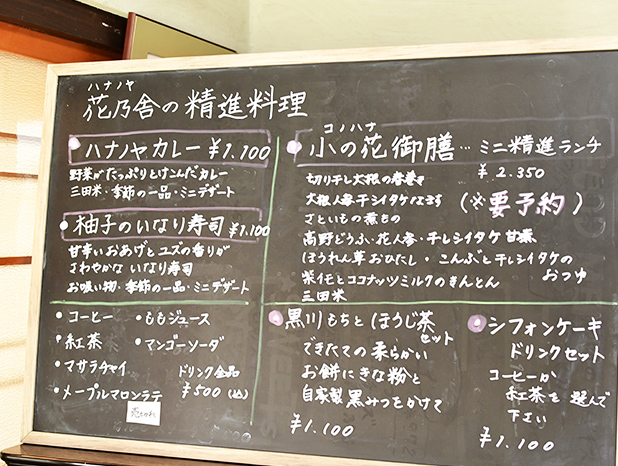 ハナノヤ
花乃舎の精進料理
ハナノヤカレー ¥1.100
野菜がたっぷりとけこんだカレー
三田米・季節の一品・ミニデザート
柚子のいなり寿司 ¥1.100
甘辛いおあげとユズの香りが
さわやかな いなり寿司
お吸い物・季節の一品・ミニデザート
・コーヒー
・紅茶
・マサラチャイ
・メープルマロンラテ
売り切れ
・ももジュース
・マンゴーソーダ
ドリンク全品
¥500(込)
コノハナ
小の花御膳…ミニ精進ランチ
¥2.350
(※要予約)
切り干し大根の春巻き
大根人参干シイタケなます
さといもの煮もの
高野どうふ・花人参・干しシイタケ 甘煮
ほうれん草おひたし・こんぶと干シイタケの
おつゆ
柴イモとココナッツミルクのきんとん
三田米
黒川もちとほうじ茶
セット
できたての柔らかい
お餅にきな粉と
自家製黒みつをかけて
¥1.100
シフォンケーキ
ドリンクセット
コーヒーか
紅茶を選んで
下さい
¥1.100